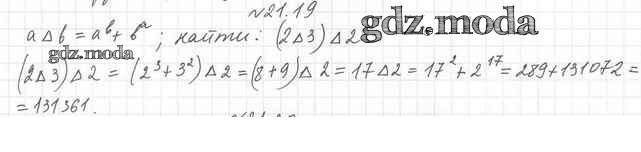 №21.19
a Δ b = a^b + b^a ; найти: (2Δ3) Δ 2
gdz.moda
gdz.moda
(2Δ3) Δ 2 = (2^3 + 3^2) Δ 2 = (8+9) Δ 2 = 17 Δ 2 = 17^2 + 2^17 = 289 + 131072 =
= 131361.